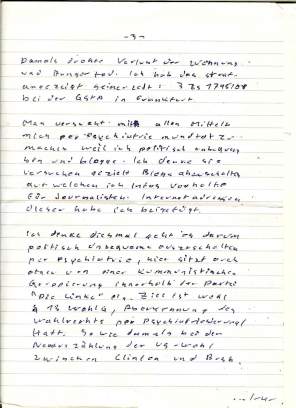 - 3 -
Damals drohte Verlust der Wohnung
und Hungertod. Ich hab das
angezeigt seinerzeit: 3 Zs 1795/08
bei der GStA in Frankfurt.
Man versucht mit allen Mitteln
mich per Psychiatrie mundtot zu
machen weil ich politisch
bin und blogge. Ich denke sie
versuchen gezielt Blogs abzuschalten
auf welchen ich Infos vorhalte
für Journalisten. Internetadressen
dieser habe ich beigefügt.
Ich denke diesmal geht es darum
politisch Unbequeme auszuschalten
per Psychiatrie, hier sitzt auch
etwas von einer Kommunistischen
Gruppierung innerhalb der Partei
"Die Linke" ein. Ziel ist wohl
§ 13 WahlG, Aberkennung des
Wahlrechts per Psychiatrisierung
statt. So wie damals bei der
Neuauszählung der US-Wahl
zwischen Clinton und Bush.